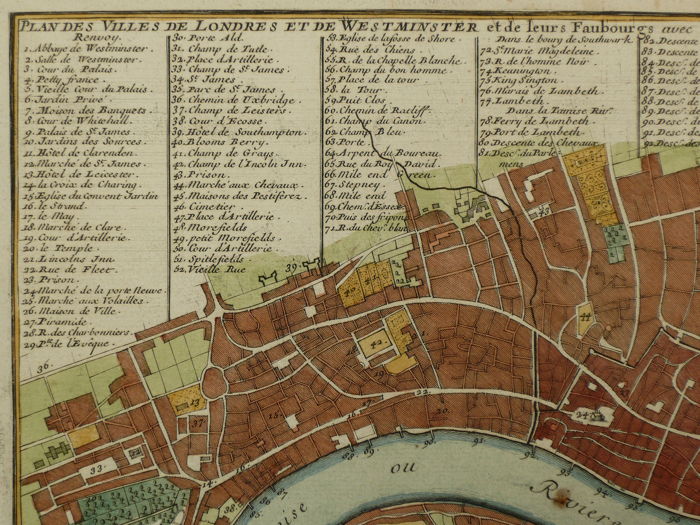 PLAN DES VILLES DE LONDRES ET DE WESTMINSTER et de leurs Faubourgs avec
Renvoy.
1. Abbaye de Westminster.
2. Salle de Westminster.
3. Cour du Palais.
4. Petty france.
5. Vieille Cour du Palais.
6. Jardin Privé.
7. Maison des Banquets.
8. Cour de Whitehall.
9. Palais de St. James.
10. Jardins des Sources.
11. Hôtel de Clarendon.
12. Marché de St. James.
13. Hôtel de Leicester.
14. la Croix de Charing.
15. Eglise du Convent Jardin
16. le Strand.
17. le May.
18. Marché de Clare.
19. Cour d'Artillerie.
20. le Temple.
21. Lincolns Inn.
22. Rue de Fleet.
23. Prison.
24. Marché de la porte Neuve.
25. Marché aux Volailles.
26. Maison de Ville.
27. Piramide.
28. R. des Charbonniers.
29. Pte. de l'Evêque.
30. Porte Ald.
31. Champ de Tutle.
32. Place d'Artillerie.
33. Champ de St. James.
34. St. James.
35. Parc de St. James.
36. Chemin de Uxbridge.
37. Champ de Leisters.
38. Cour d'Ecosse.
39. Hôtel de Southampton.
40. Blooms Berry.
41. Champ de Grays.
42. Champ de l'Incoln Inn.
43. Prison.
44. Marché aux Chevaux.
45. Maisons des Pestiferez.
46. Cimetier.
47. Place d'Artillerie.
48. Morefields
49. petit Morefields.
50. Cour d'Artillerie.
51. Spittlefields.
52. Vieille Rue
53. Eglise de la fosse de Shore.
54. Rue des Chiens.
55. R. de la Chapelle Blanche.
56. Champ du bon homme.
57. Place de la tour.
58. la Tour.
59. Puit Clos.
60. Chemin de Ratliff.
61. Champ du Canon.
62. Champ Bleu.
63. Porte.
64. Arpent du Boureau.
65. Rue du Roy David.
66. Mile end Green
67. Stepney
68. Mile end
69. Chem. d'Essex
70. Puis des fripons
71. R. du Chev. blanc
Dans le bourg de Southwark.
72. St. Marie Magdeleine.
73. R. de l'homme Noir.
74. Kennington.
75. King Sington.
76. Marais de Lambeth.
77. Lambeth.
Dans la Tamise Rivr.
78. Ferry de Lambeth.
79. Port de Lambeth.
80. Descente des Chevaux
81. Desc. du Parle-
mens
82. Descente
83. Descent
84. Desc.
85. Desc.
86. Desc.
87. Desc.
88. Desc.
89. Desc.
90. Desc.
91. Desc.
92. Desc.
36.
39.
40
41
43
44
18
42
19
1.
13
37
15.
16
17.
22.
20.
24
33
32
14
88
89
90
91
92
93
94
ou
Riviere